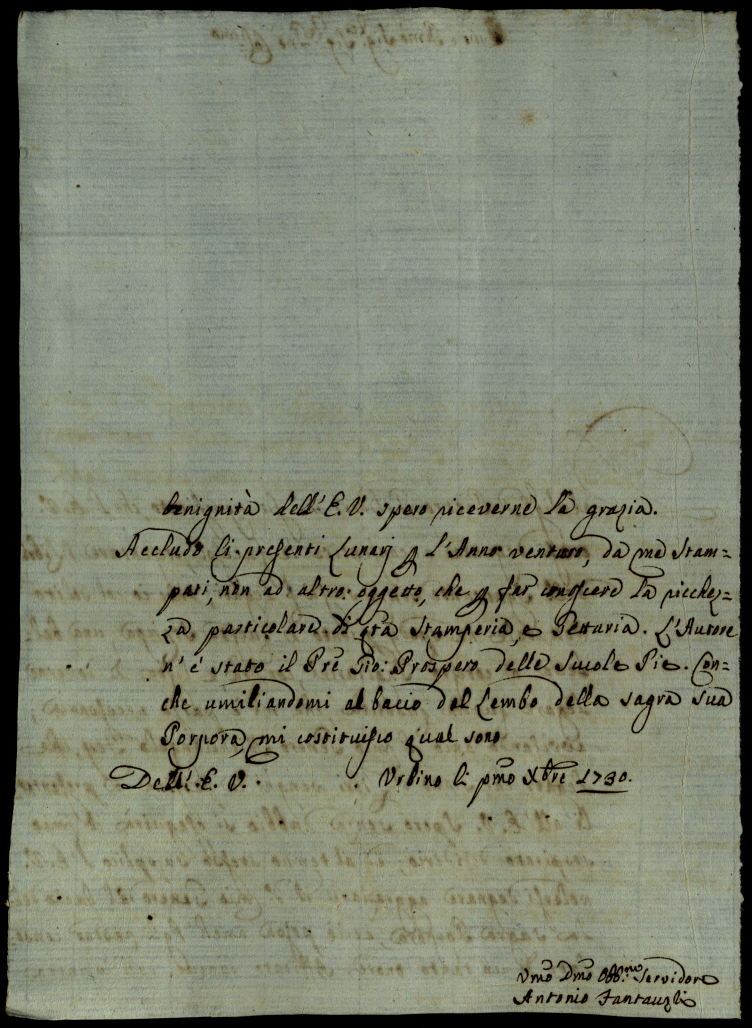 benignità dell'E. V. spero riceverne la grazia.
Accludo li presenti Lunarj p l'Anno venturo, da me Stam-
pati, non ad altro oggetto, che p far conoscere la ricchez-
za particolare di q̃ta Stamperia, e Lettaria. L'Autore
n'è stato il Prẽ Gio: Prospero delle Scuole Pie. Con-
che umiliandomi al bacio del Lembo della sagra sua
Porpora, mi costituisco qual sono
Dell'E. V. Urbino li pmo Xbre 1730.
Vmo Dmo Obb.mo Servidore
Antonio Fantauzzi